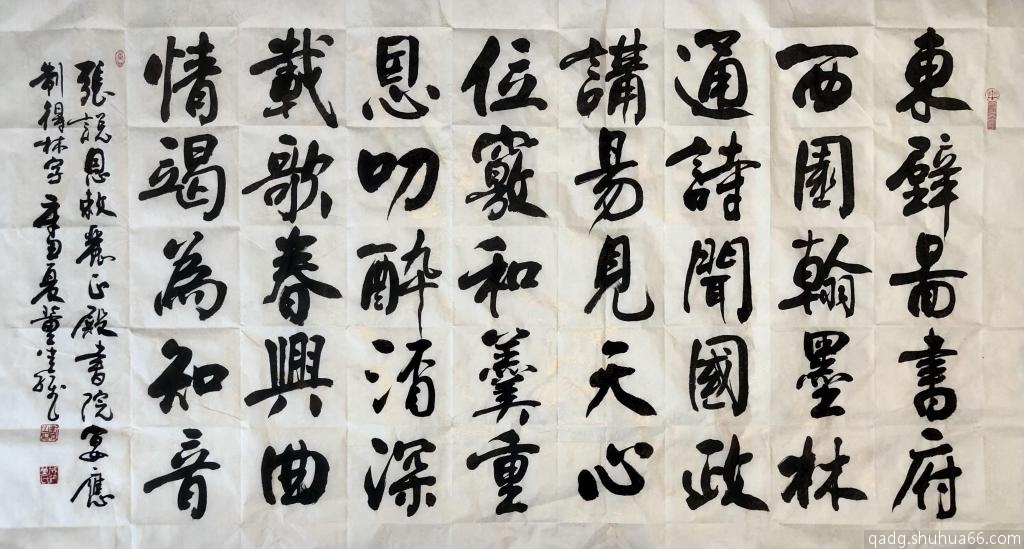 東壁圖書府
西園翰墨林
通詩聞國政
講易見天心
位竊和羹重
恩叨醉湑深
載歌春興曲
情竭為知音
張說恩敕麗正殿書院宴應
制得林字 夏董
qadg.shuhua66.com